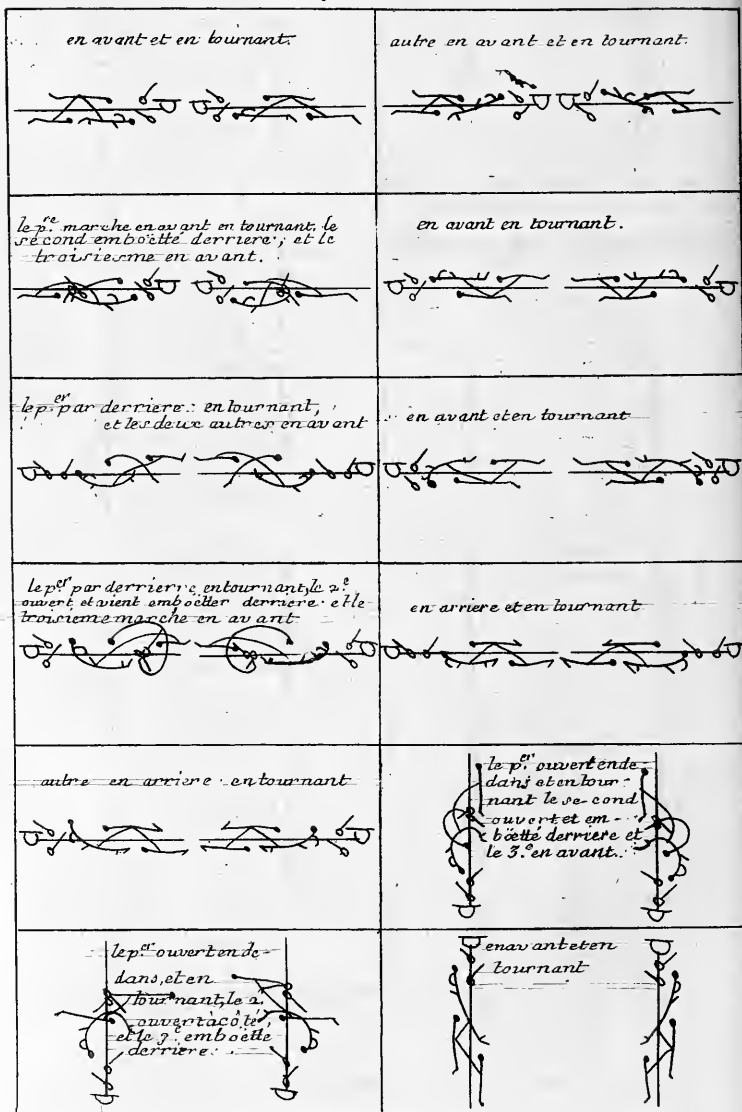 en avant et en tournant.
autre en avant et en tournant.
le p.re marche en avant en tournant, le
second emboëtte derriere; et le
troisiesme en avant.
en avant en tournant.
le p.er par derriere: en tournant,
et les deux autres en avant
en avant et en tournant
le p.er par derrierre en tournant, le 2.e
ouvert, et vient emboëtter derriere et le
troisieme marche en avant
en arriere et en tournant
autre en arriere en tournant
le p.er ouvert en de
dans et en tour-
nant le se-cond
ouvert et em-
boëtté derriere et
le 3.e en avant.
le p.er ouvert en de-
dans, et en
tournant, le 2.
ouvert à côté,
et le 3.e emboëtte
derriere.
en avant et en
tournant